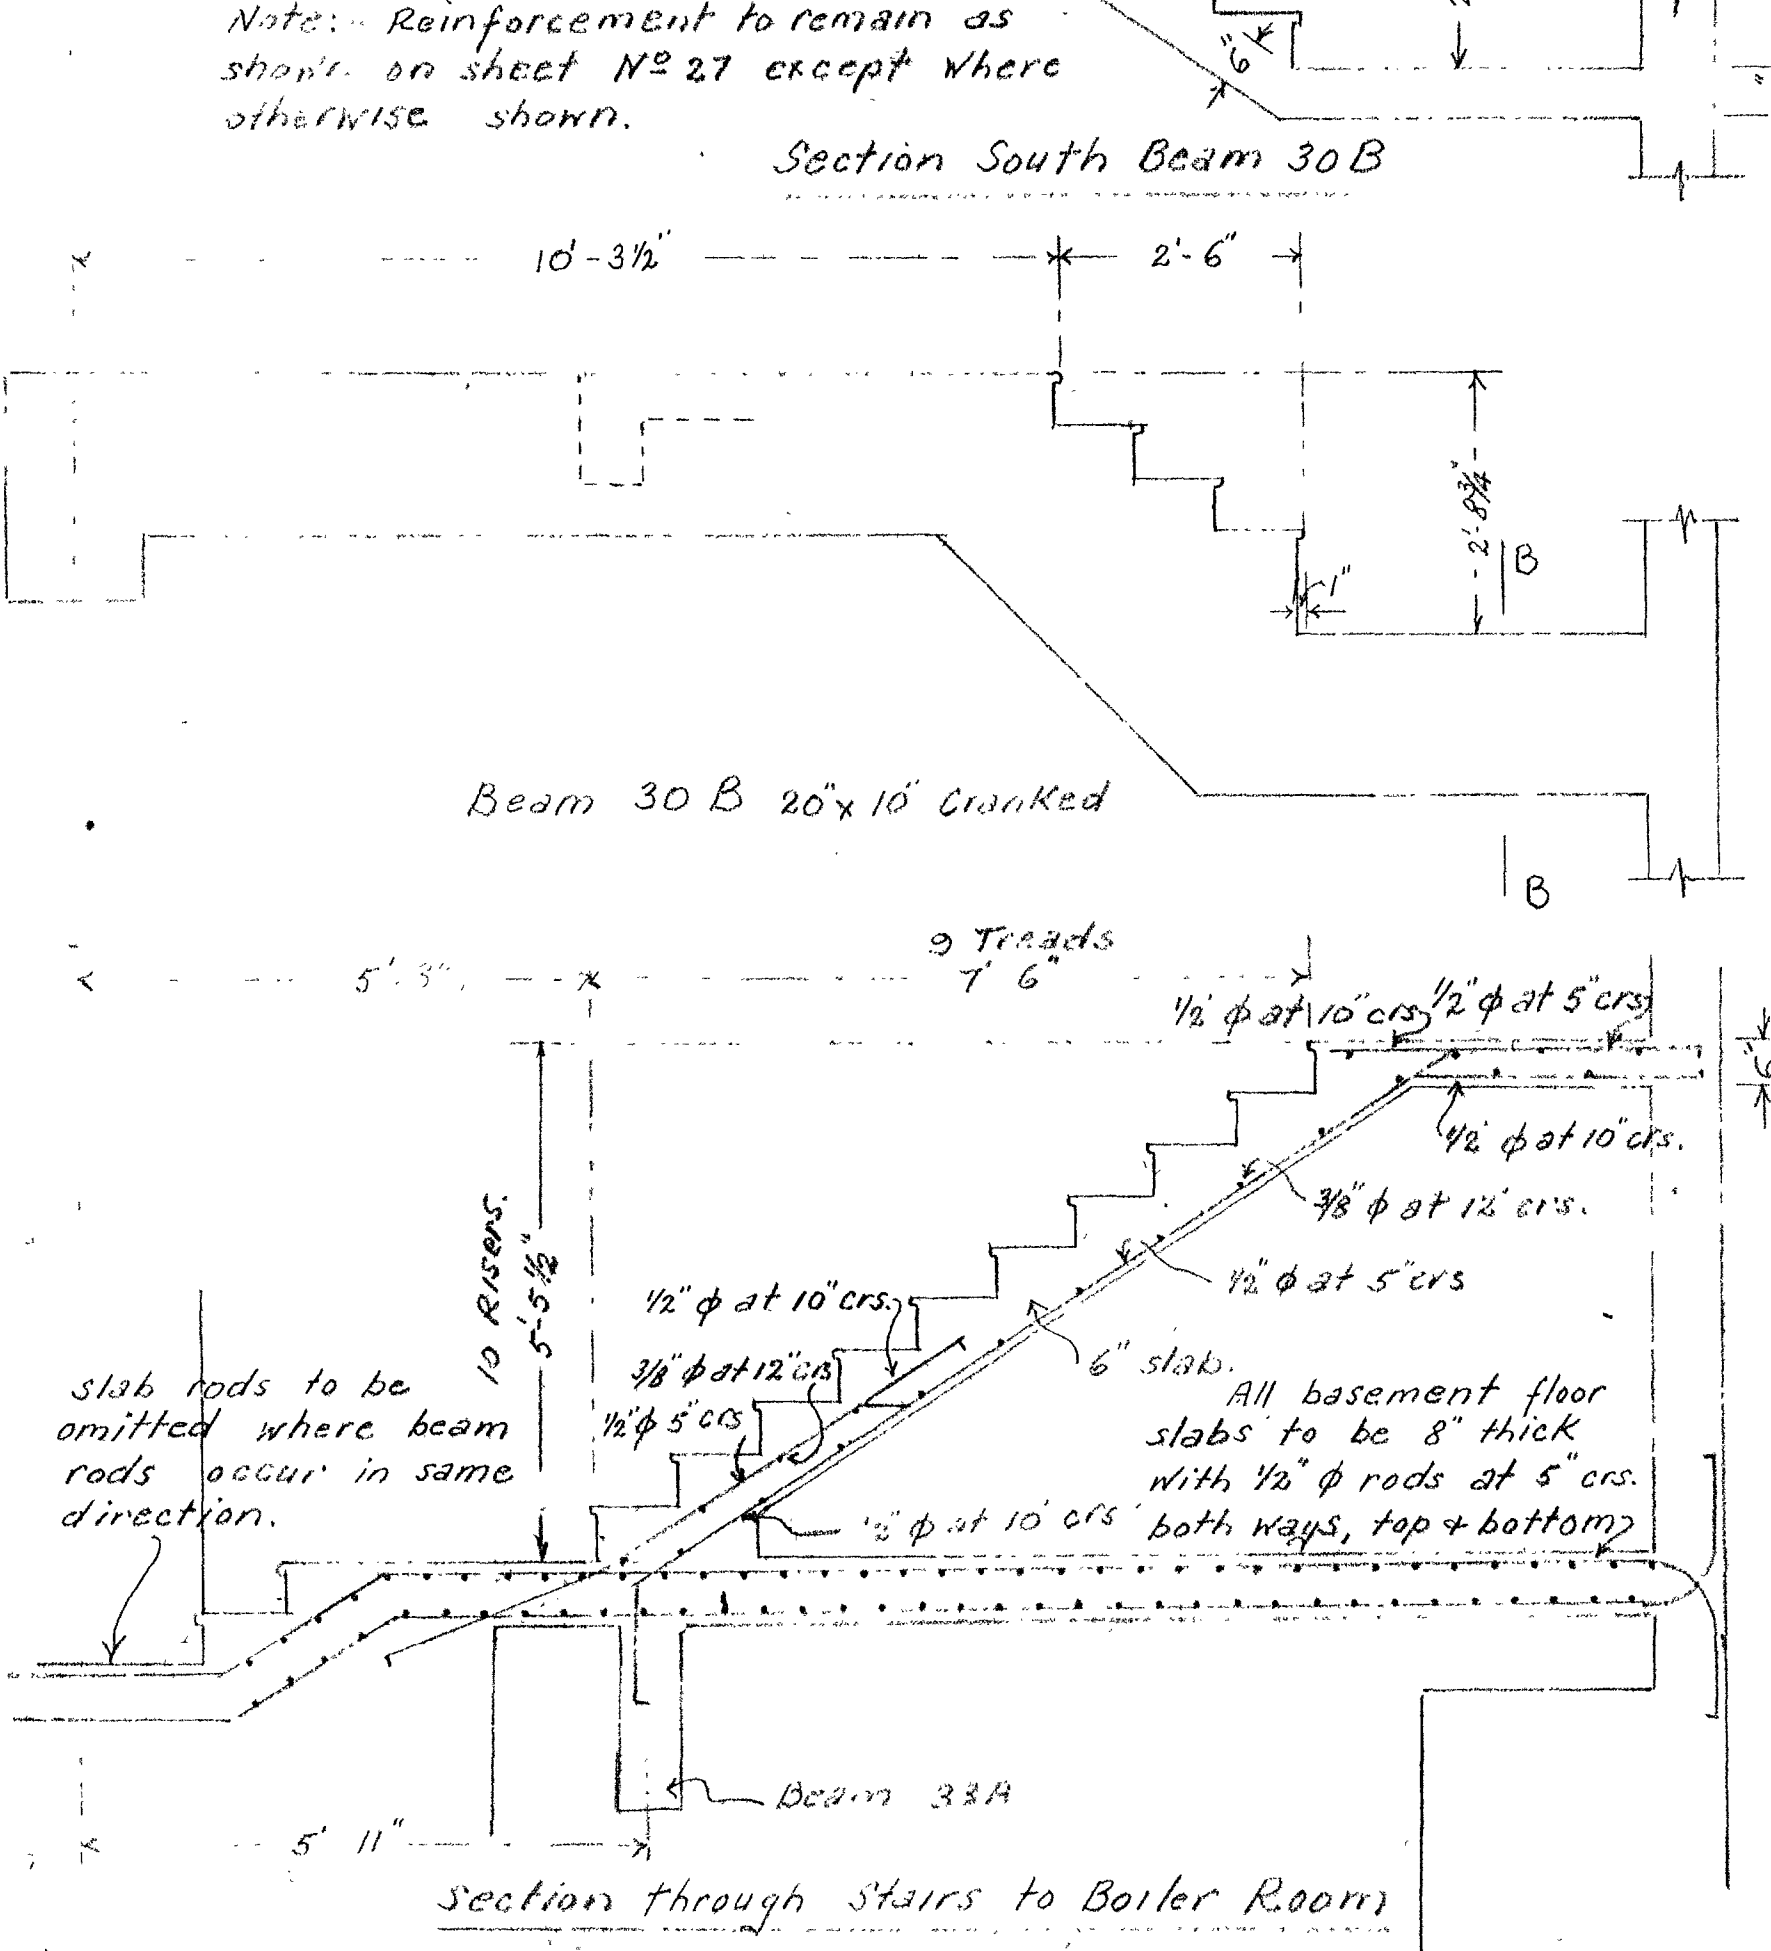 Note:- Reinforcement to remain as
shown on sheet Nº 27 except where
otherwise shown.
6"
Section South Beam 30B
10'-3½"
2'-6"
2'-8¾"
B
1"
Beam 30 B 20"x 10" Cranked
B
9 Treads
5'-3"
7' 6"
½" ϕ at 10" crs
½" ϕ at 5" crs
6"
½" ϕ at 10" crs.
⅜" ϕ at 12" crs.
10 Risers.
5'-5½"
½" ϕ at 5" crs
½" ϕ at 10" crs.
6" slab.
⅜" ϕ at 12" crs
½" ϕ 5" crs
slab rods to be
omitted where beam
rods occur in same
direction.
All basement floor
slabs to be 8" thick
with ½" ϕ rods at 5" crs.
both ways, top & bottom
½" ϕ at 10" crs
Beam 33A
5' 11"
Section through Stairs to Boiler Room